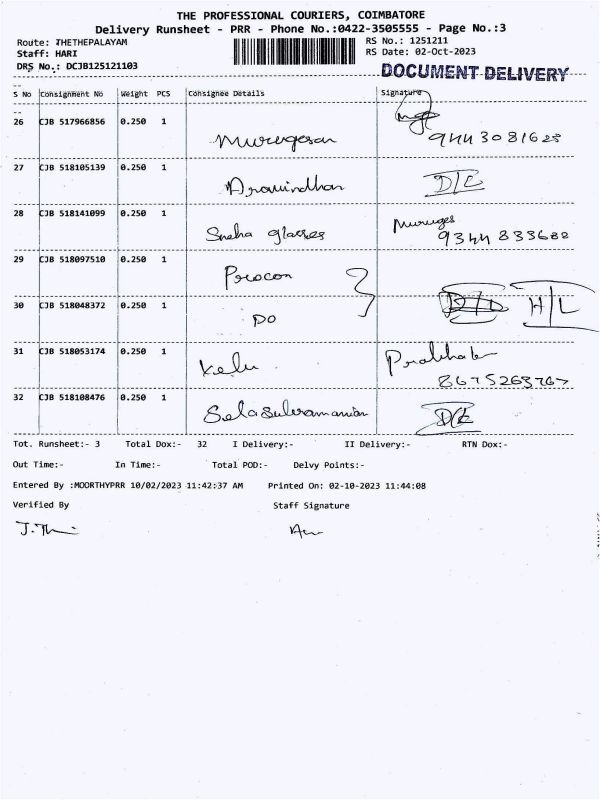 THE PROFESSIONAL COURIERS, COIMBATORE
Delivery Runsheet - PRR - Phone No.:0422-3505555 - Page No.:3
Route: THETHEPALAYAM RS No.: 1251211
Staff: HARI RS Date: 02-Oct-2023
DRS No.: DCJB125121103
DOCUMENT DELIVERY
S No Consignment No Weight PCS Consignee Details Signature
26 CJB 517966856 0.250 1 Murugesan
27 CJB 518105139 0.250 1 Aravindhan D/L
28 CJB 518141099 0.250 1 Sneha glasses Muruges
9344 833688
29 CJB 518097510 0.250 1 Procon
30 CJB 518048372 0.250 1 DO H/L
31 CJB 518053174 0.250 1 Kelu Prabhak
8675263767
32 CJB 518108476 0.250 1 D/L
Tot. Runsheet:- 3 Total Dox:- 32 I Delivery:- II Delivery:- RTN Dox:-
Out Time:- In Time:- Total POD:- Delvy Points:-
Entered By :MOORTHYPRR 10/02/2023 11:42:37 AM Printed On: 02-10-2023 11:44:08
Verified By Staff Signature